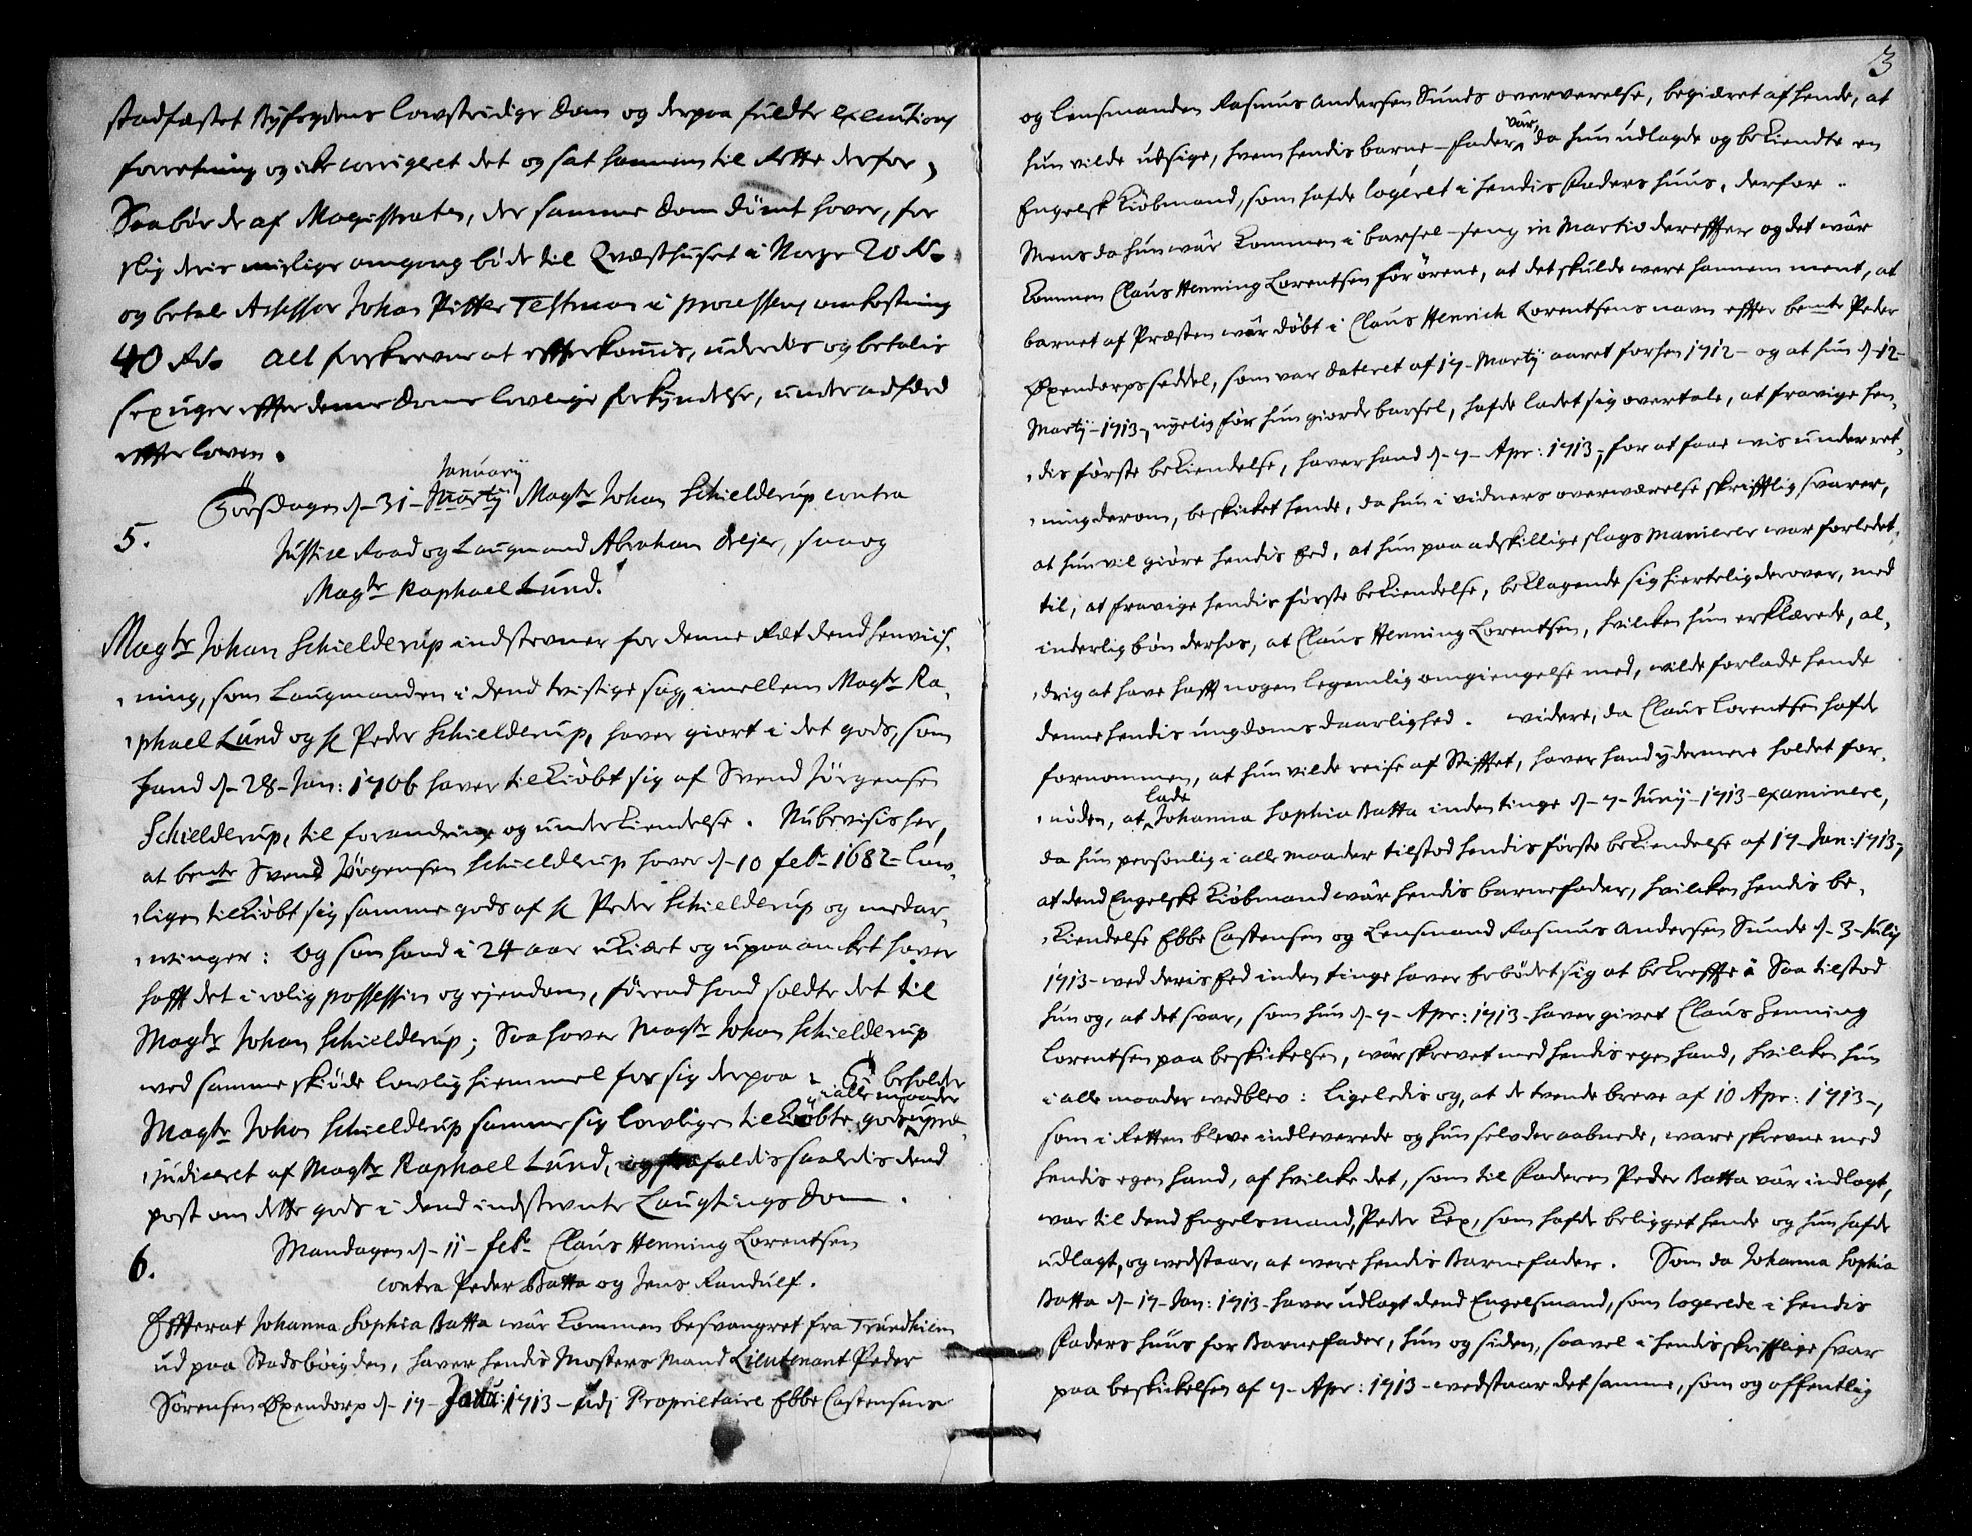 stadfæstet Byfogdens lowstridige Dom og derpaa fuldte executions
forretning og icke corrigeret det og sat hannem til Rette derfor,
Saa bør de af Magistraten, der samme Dom dömt hover, for
slig deris urislige omgang böde til Qvæsthuset i Norge 20 Rd.
og betale Assessor Johan Pitter Testman i processens omkostning
40 Rd. All forskrevne at effterkommis, uderedis og betalis
sex uger effter denne Doms lovlige forkyndelse, under adfærd
effter loven.
Januarij
Torsdagen d. 31 - Martij Magtr Johan Schielderup contra
5.
Justice Raad og Laugmand Abraham Drejer, saa og
Magtr Raphael Lund.
Magtr Johan Schielderup indstevner for denne Ræt dend henviis-
ning, som Laugmanden i dend tvistige sag, imellem Magtr Ra-
phael Lund og Sl Peder Schielderup, hover giort i det gods, som
hand d. 28 Jan: 1706 haver tilkiöbt sig af Svend Jörgensen
Schielderup, til forandring og underkiendelse. Nu bevisis her,
at bemte Svend Jörgensen Schielderup hover d. 10 febr 1682 - low-
ligen tilkiöbt sig samme gods af Sl Peder Schielderup og medar-
winger: Og som hand i 24 aar ukiært og upaaancket hover
hafft det i rolig possession og ejendom, förend hand soldte det til
Magtr Johan Schielderup; Saa hover Magtr Johan Schielderup
wed samme skiöde lowlig hiemmel for sig derpaa: beholder
i alle maader
Magtr Johan Schielderup samme sig lowligen tilkiöbte gods upræ-
judiceret af Magtr Raphael Lund, og frafaldis saaledis dend
post om dette gods i dend indstevnte Laugtings Dom.
Mandagen d. 11 - febr Claus Henning Lorentsen
6.
contra Peder Batta og Jens Randulf.
Effterat Johanna Sophia Batta wär kommen besvangret fra Trundhiem
ud paa Stadsböigden, haver hendis Mosters Mand Lieutenant Peder
Sörensen Øxendorp d. 17 - Jan: 1713 - udj Proprietaire Ebbe Castensens
3
og lensmanden Rasmus Andersen Sunds oververelse, begiæret af hende, at
var,
hun vilde udsige, hvem hendis barne-fader da hun udlagde og bekiendte en
Engelsk Kiöbmand, som hafde logéret i hendis faders huus, derfor.
Mens da hun wär kommen i barsel-seng in Martio dereffter og det wär
kommen Claus Henning Lorentsen for örene, at det skulde were hannem ment, at
barnet af Præsten wär döbt i Claus Henrich Lorentsens navn effter bemte Peder
Øxendorps seddel, som var dateret af 17 - Martij aaret forhen 1712 - og at hun d. 12 -
Martij - 1713, nyelig för hun giorde barsel, hafde ladet sig overtale, at fravige hen-
dis förste bekiendelse, haver hand d. 7 - Apr: 1713, for at faae wis underret-
ning derom, beskicket hende, da hun i vidners overwærelse skrifftlig svarer,
at hun vil giöre hendis Eed, at hun paa adskillige slags Manierer war forledet
til, at fravige hendis förste bekiendelse, beklagende sig hiertelig derover, med
inderlig bön derhos, at Claus Henning Lorentsen, hvilcken hun erklærede, al-
drig at have hafft nogen legemlig omgiengelse med, wilde forlade hende
denne hendis ungdoms daarlighed. widere, da Claus Lorentsen hafde
fornommen, at hun vilde reise af Stifftet, haver hand ydermere holdet for-
lade
nöden, at Johanna Sophia Batta inden tinge d. 7 - Junij - 1713 - examinere,
da hun personlig i alle maader tilstod hendis förste bekiendelse af 17 - Jan: 1713,
at dend Engelske Kiöbmand wär hendis barnefader, hvilcken hendis be-
kiendelse Ebbe Castensen og Lensmand Rasmus Andersen Sunde d. 3 - Julij
1713 - wed deris Eed inden tinge haver Erbödet sig at bekreffte: Saa tilstod
hun og, at det svar, som hun d. 7 - Apr: 1713 - haver givet Claus Henning
Lorentsen paa beskickelsen, wär skrevet med hendis egen hand, hvilcken hun
i alle maader wedblev: Ligeledis og, at de tvende breve af 10 Apr: 1713 -,
som i Retten bleve indleverede og hun selv der aabnede, ware skrevne med
hendis egen hand, af hvilcke det, som til faderen Peder Batta vär indlagt,
war til dend Engelsmand, Peder Kex, som hafde beligget hende og hun hafde
udlagt, og wedstaar, at were hendis Barnefader. Som da Johanna Sophia
Batta d. 17 - Jan: 1713 - haver udlagt dend Engelsmand, som logerede i hendis
faders huus for Barnefader, hun og siden, saavel i hendis skrifftlige svar
paa beskickelsen af 7 - Apr: 1713 - wedstaar det samme, som og offentlig